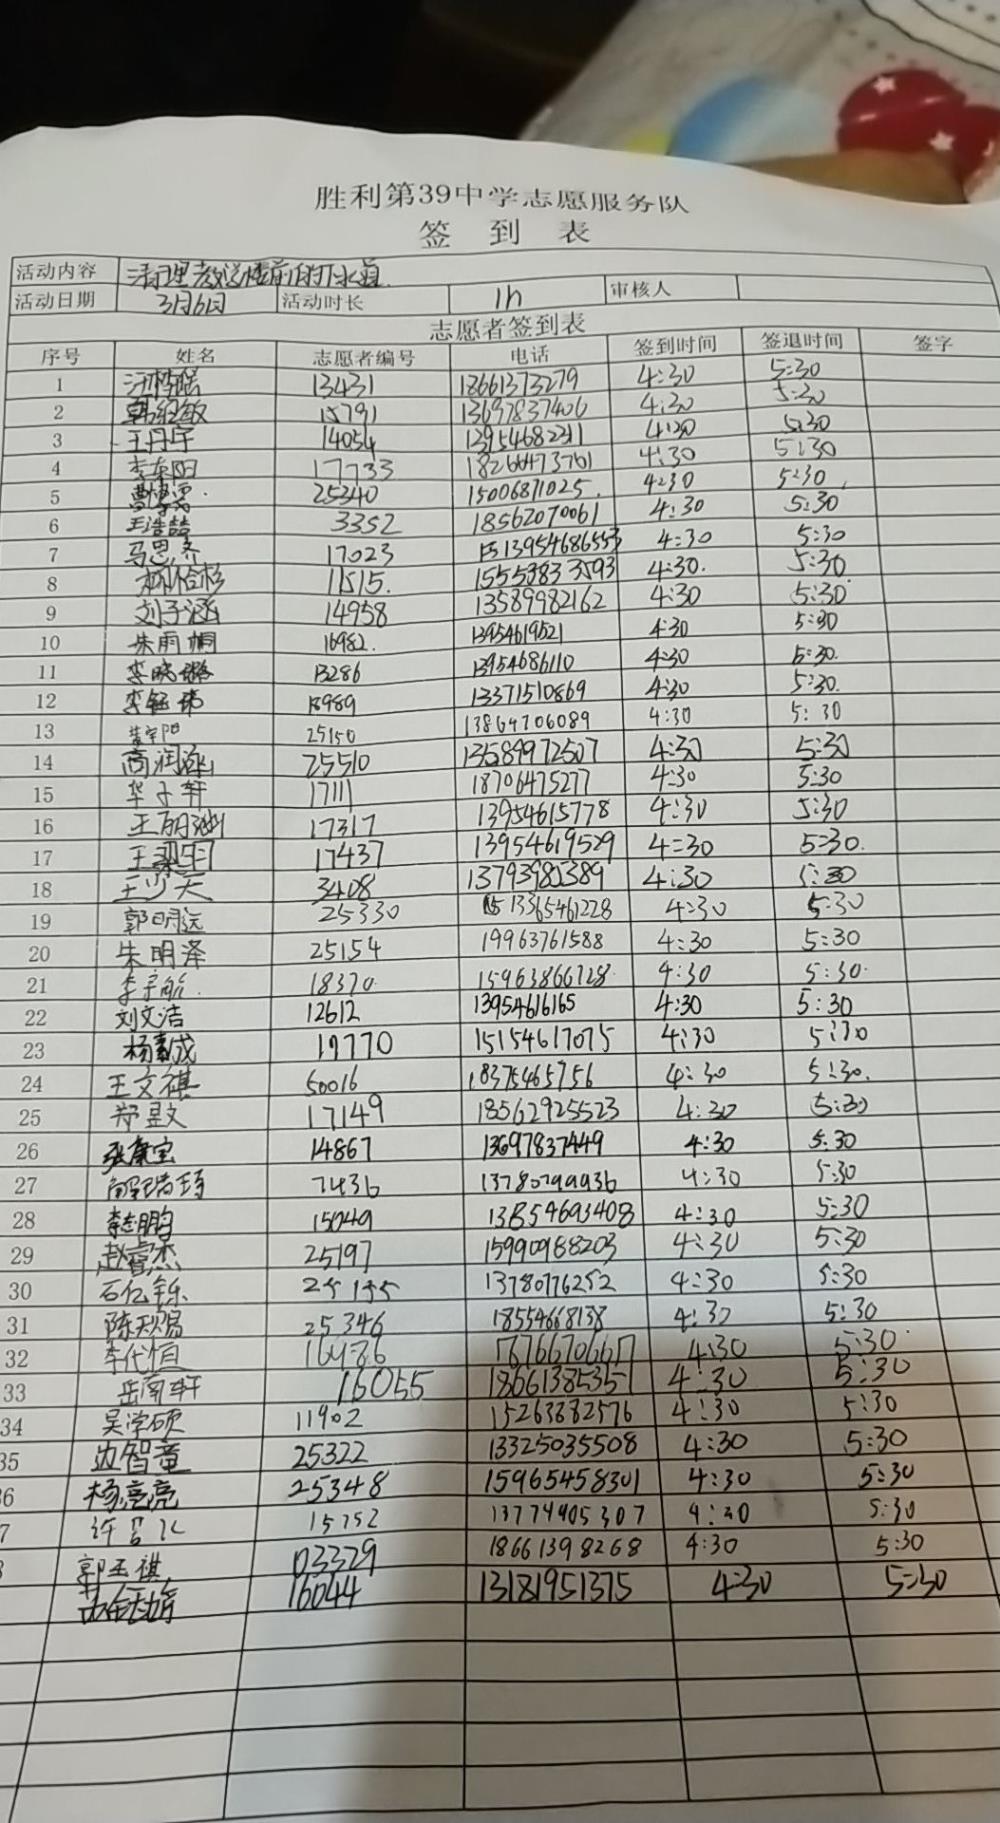 胜利第39中学志愿服务队
签 到 表
活动内容 清理教学楼前的下水道
活动日期 3月6日 活动时长 1h 审核人
志愿者签到表
序号 姓名 志愿者编号 电话 签到时间 签退时间 签字
1 13431 18661373279 4:30 5:30
2 韩绍敏 15791 13697837406 4:30 5:30
3 王丹宇 14054 13954682311 4:30 5:30
4 李东阳 17733 18266473761 4:30 5:30
5 曹博勇 25340 15006871025 4:30 5:30
6 王浩喆 3352 18562070061 4:30 5:30
7 马思齐 17023 13954686553 4:30 5:30
8 11515 15553833593 4:30 5:30
9 刘子涵 14958 13589982162 4:30 5:30
10 朱雨桐 16982 13954619521 4:30 5:30
11 李晓璐 13286 13954686110 4:30 5:30
12 李钰瑞 18989 13371510869 4:30 5:30
13 25150 13864706089 4:30 5:30
14 商润泳 25510 13589972507 4:30 5:30
15 华子轩 17111 18706475277 4:30 5:30
16 王丽涵 17317 13954615778 4:30 5:30
17 17437 13954619529 4:30 5:30
18 王少天 3408 13793980389 4:30 5:30
19 郭明远 25330 13365461228 4:30 5:30
20 朱明泽 25154 19963761588 4:30 5:30
21 李宇航 18370 15963866728 4:30 5:30
22 刘文洁 12612 13954616165 4:30 5:30
23 19770 15154617075 4:30 5:30
24 王文祺 50016 18375465756 4:30 5:30
25 郑昱文 17149 18562925523 4:30 5:30
26 张康宝 14867 13697837449 4:30 5:30
27 7436 13780799936 4:30 5:30
28 李志鹏 15049 13854693408 4:30 5:30
29 赵睿杰 25197 15990988203 4:30 5:30
30 石亿铄 25155 13780776252 4:30 5:30
31 陈天赐 25346 18554668138 4:30 5:30
32 李代恒 16486 17676670667 4:30 5:30
33 岳南轩 16055 18661385351 4:30 5:30
34 吴学硕 11902 15263882576 4:30 5:30
35 边智童 25322 13325035508 4:30 5:30
36 杨亮亮 25348 15965458301 4:30 5:30
7 15752 13774905307 4:30 5:30
郭玉祺 03329 18661398268 4:30 5:30
16044 13181951375 4:30 5:30